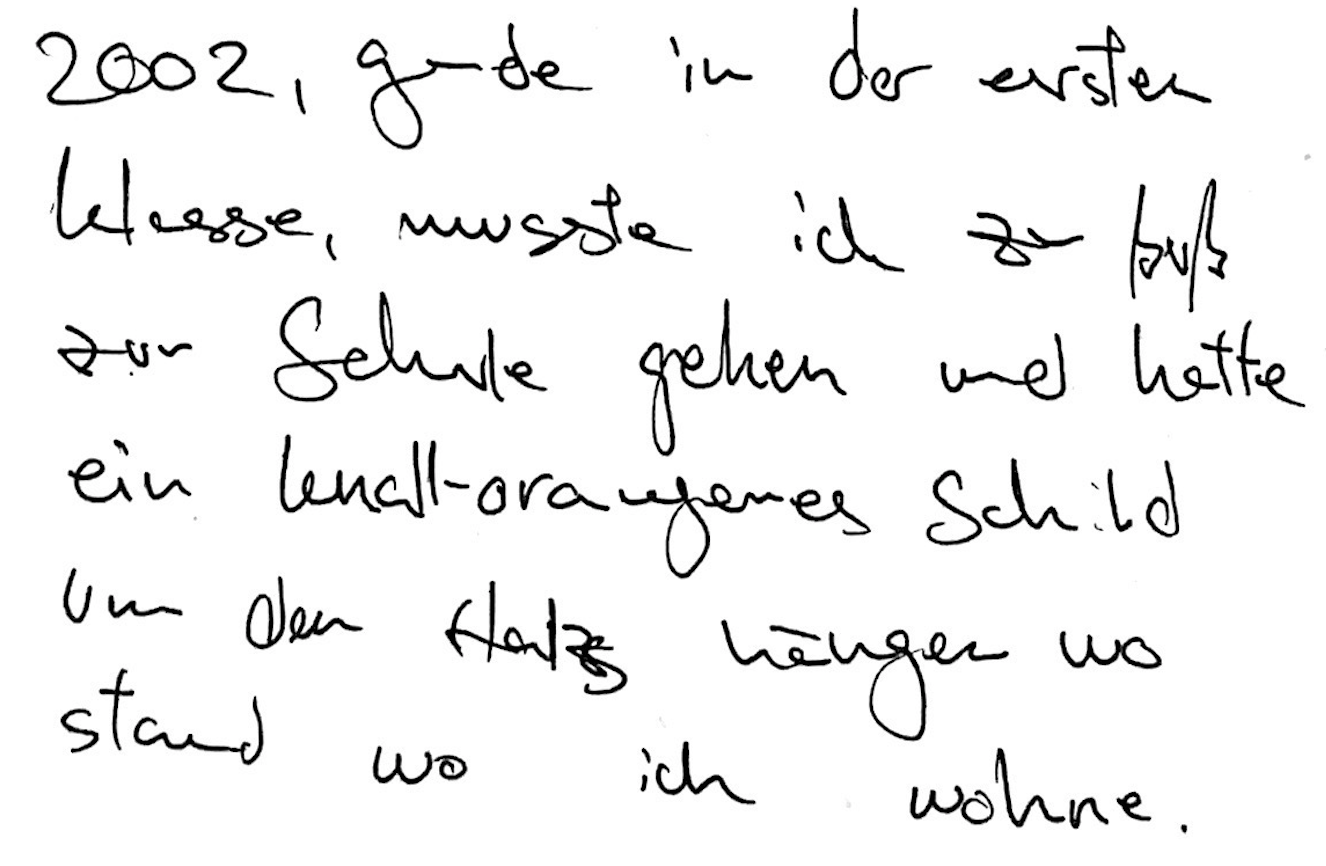 2002, grade in der ersten
Klasse, musste ich zu Fuß
zur Schule gehen und hatte
ein knall-orangenes Schild
um den Hals hängen wo
stand wo ich wohne.